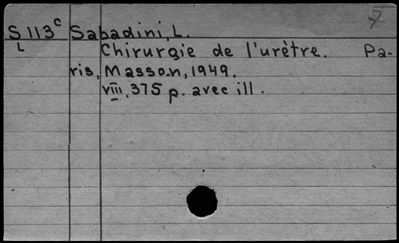 7
S 113ᶜ Sabadini, L.
L Chirurgie de l'urètre. Pa-
ris, Masson, 1949.
viii, 375 p. avec ill.